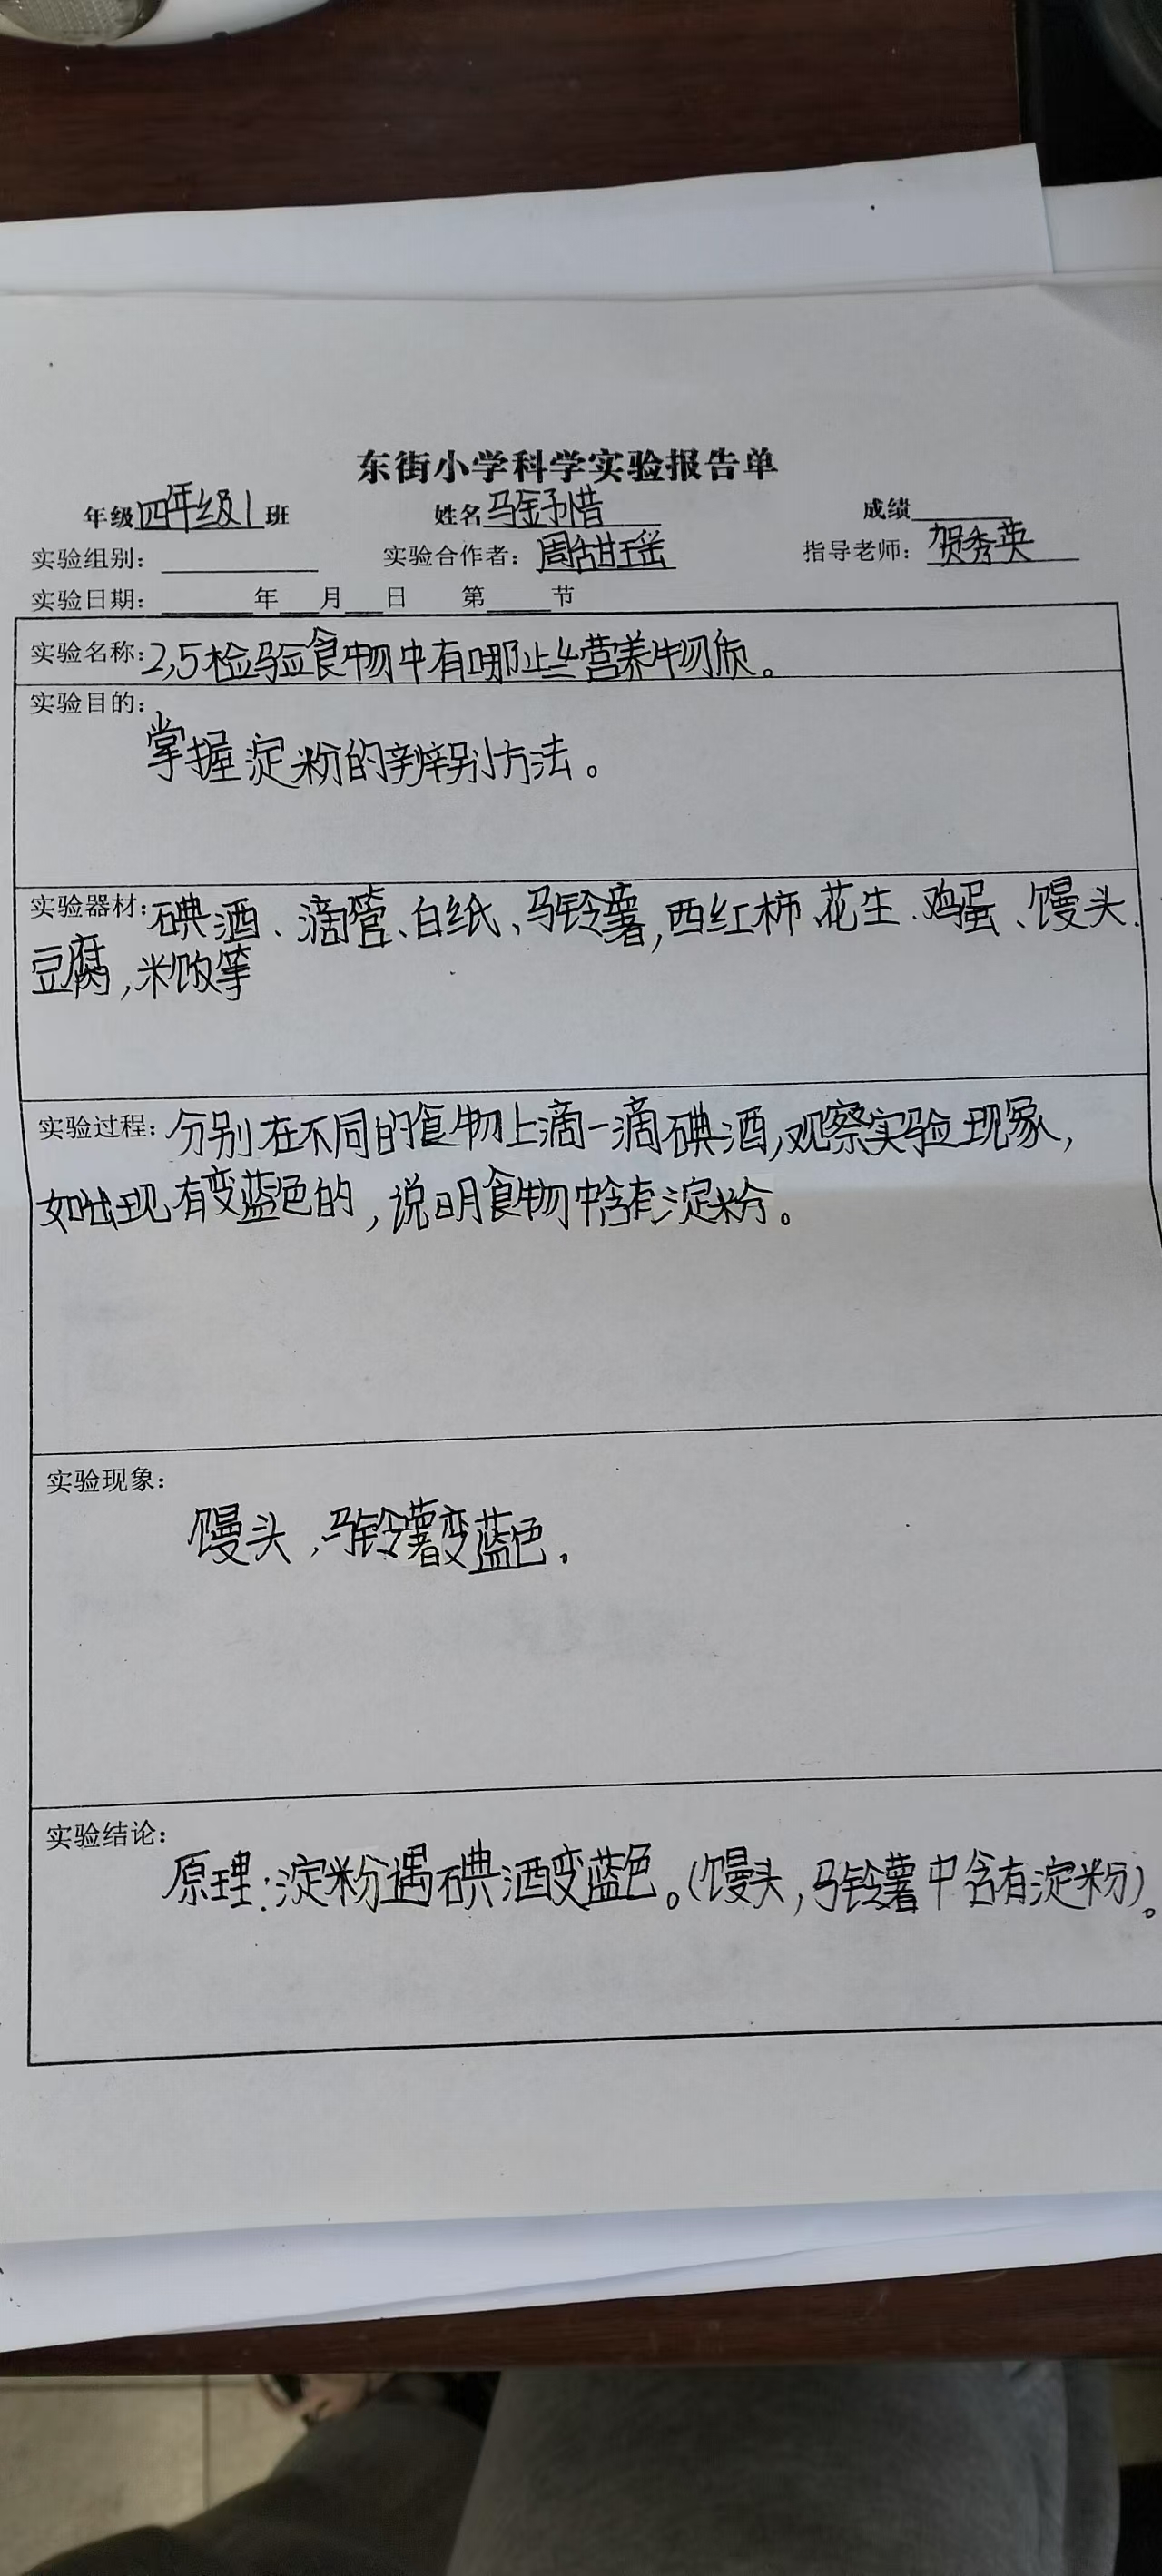 东街小学科学实验报告单
年级四年级1班 姓名马金予惜 成绩
实验组别: 实验合作者:周甜瑶 指导老师:贺秀英
实验日期: 年 月 日 第 节
实验名称:2,5检验食物中有哪些营养物质。
实验目的:
掌握淀粉的辨别方法。
实验器材:碘酒、滴管、白纸、马铃薯,西红柿、花生、鸡蛋、馒头、
豆腐,米饭等
实验过程:分别在不同的食物上滴一滴碘酒,观察实验现象,
如出现有变蓝色的,说明食物中含有淀粉。
实验现象:
馒头,马铃薯变蓝色。
实验结论:
原理:淀粉遇碘酒变蓝色。(馒头,马铃薯中含有淀粉)。